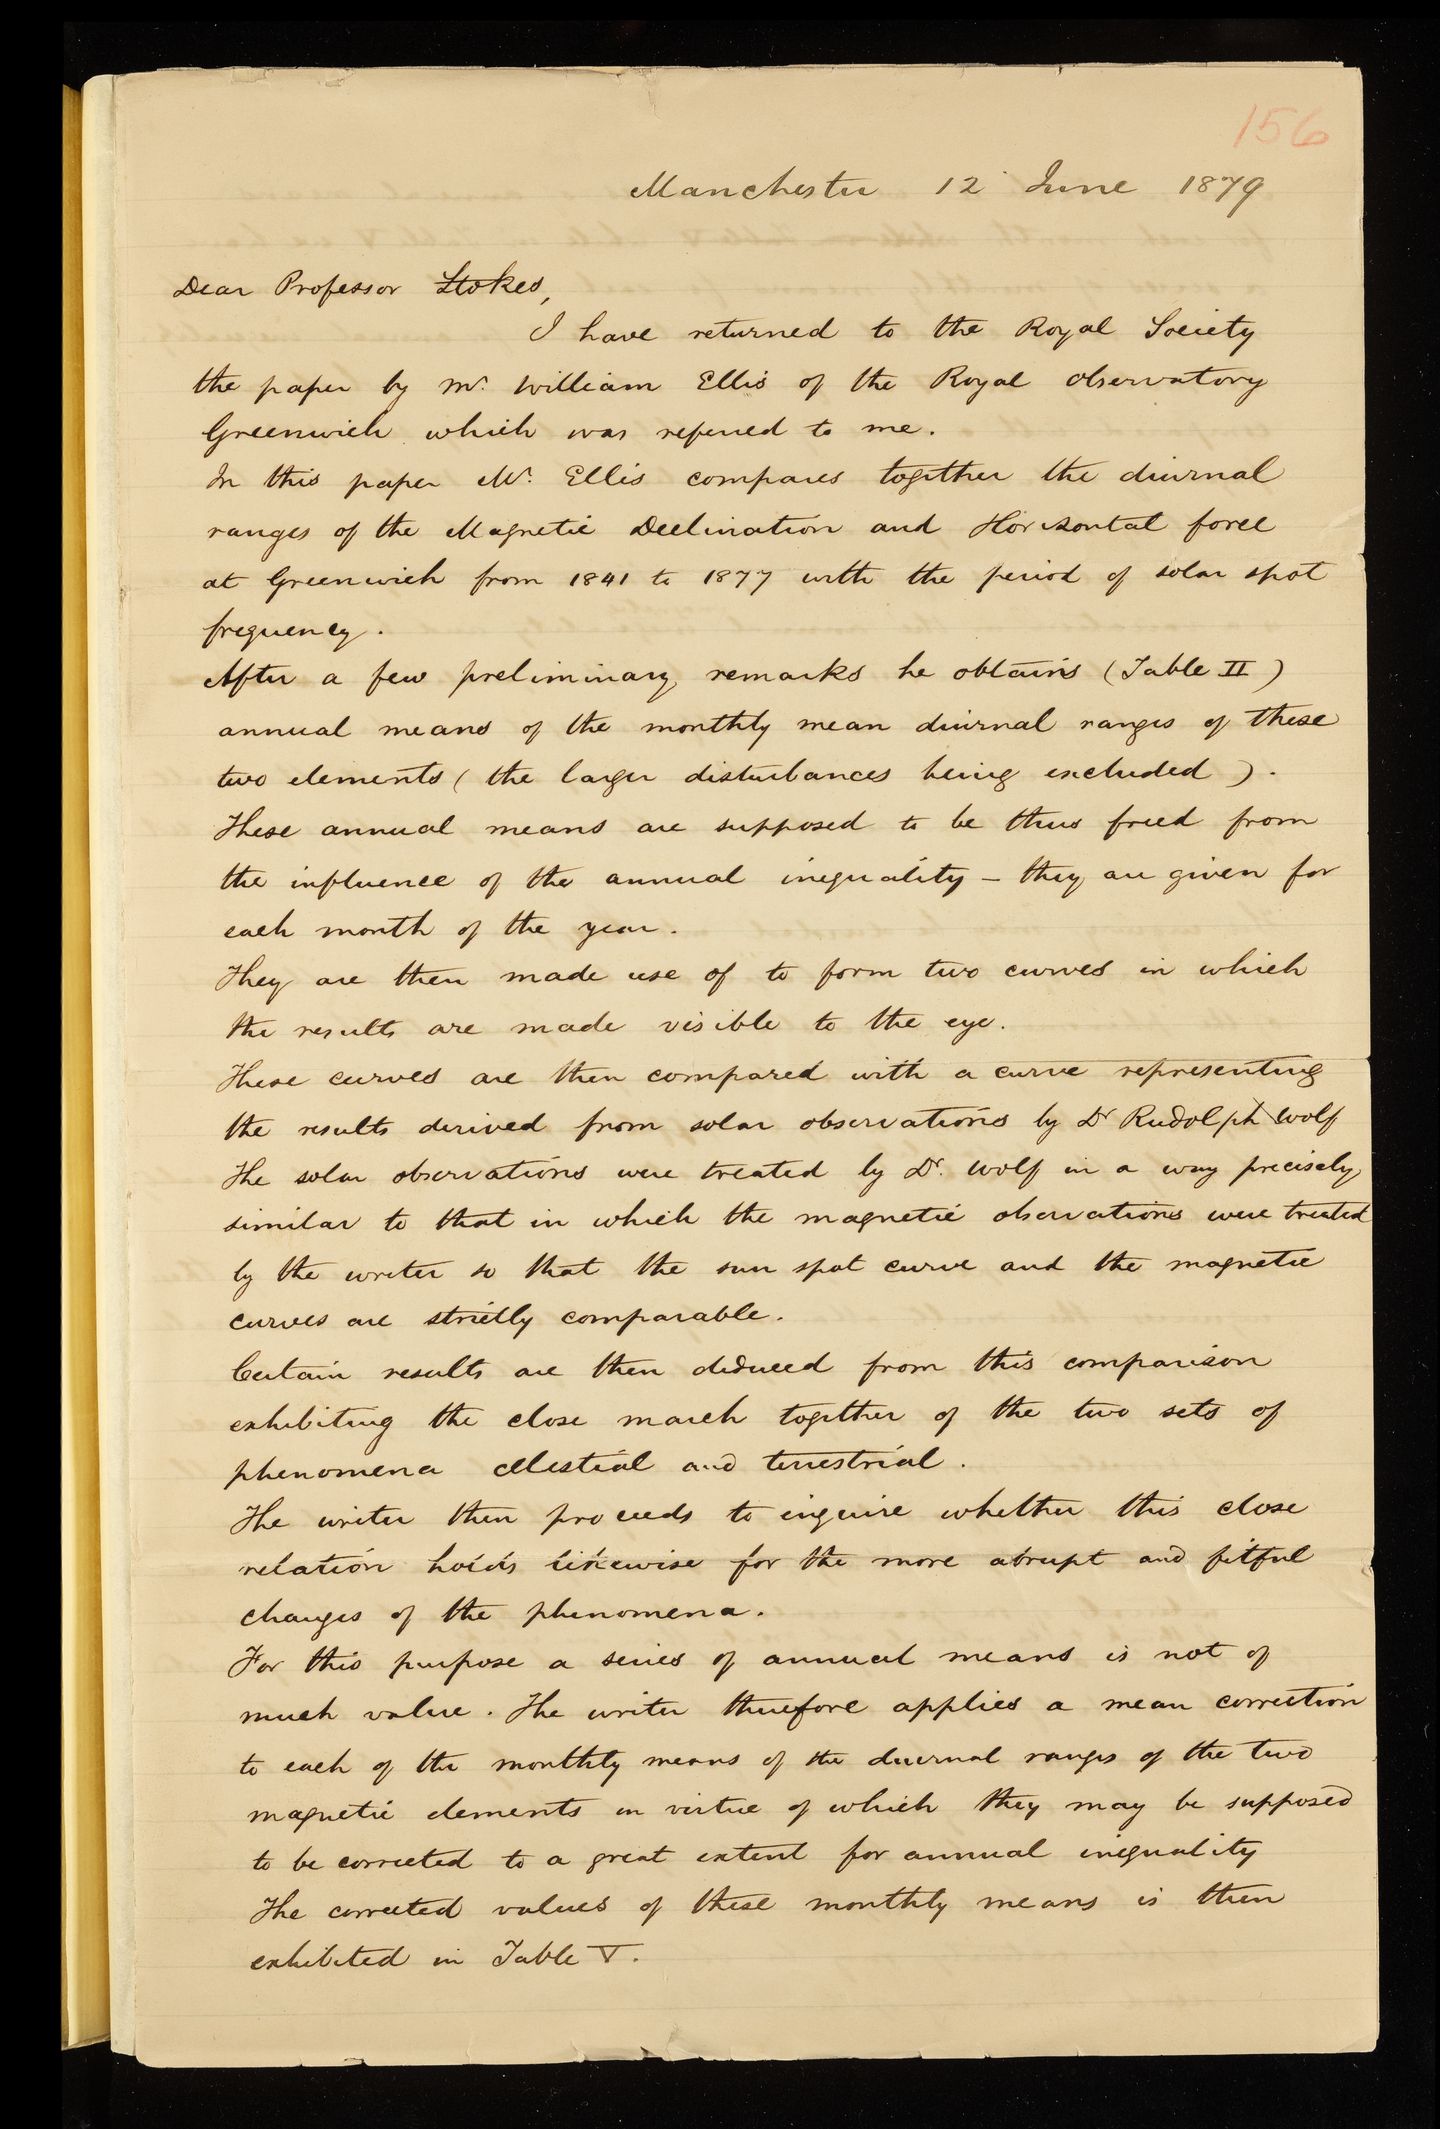 156
Manchester 12 June 1879
Dear Professor Stokes,
I have returned to the Royal Society
the paper by Mr. William Ellis of the Royal Observatory
Greenwich which was referred to me.
In this paper Mr. Ellis compares together the diurnal
ranges of the Magnetic Declination and Horizontal force
at Greenwich from 1841 to 1877 with the period of solar spot
frequency.
After a few preliminary remarks he obtains (Table II)
annual means of the monthly mean diurnal ranges of these
two elements (the larger disturbances being excluded).
These annual means are supposed to be thus freed from
the influence of the annual inequality – they are given for
each month of the year.
They are then made use of to form two curves in which
the results are made visible to the eye.
These curves are then compared with a curve representing
the results derived from solar observations by Dr Rudolph Wolf
The solar observations were treated by Dr. Wolf in a way precisely
similar to that in which the magnetic observations were treated
by the writer so that the sun spot curve and the magnetic
curves are strictly comparable.
Certain results are then deduced from this comparison
exhibiting the close march together of the two sets of
phenomena celestial and terrestrial.
The writer then proceeds to inquire whether this close
relation holds likewise for the more abrupt and fitful
changes of the phenomena.
For this purpose a series of annual means is not of
much value. The writer therefore applies a mean correction
to each of the monthly means of the diurnal ranges of the two
magnetic elements in virtue of which they may be supposed
to be corrected to a great extent for annual inequality
The corrected values of these monthly means is then
exhibited in Table V.